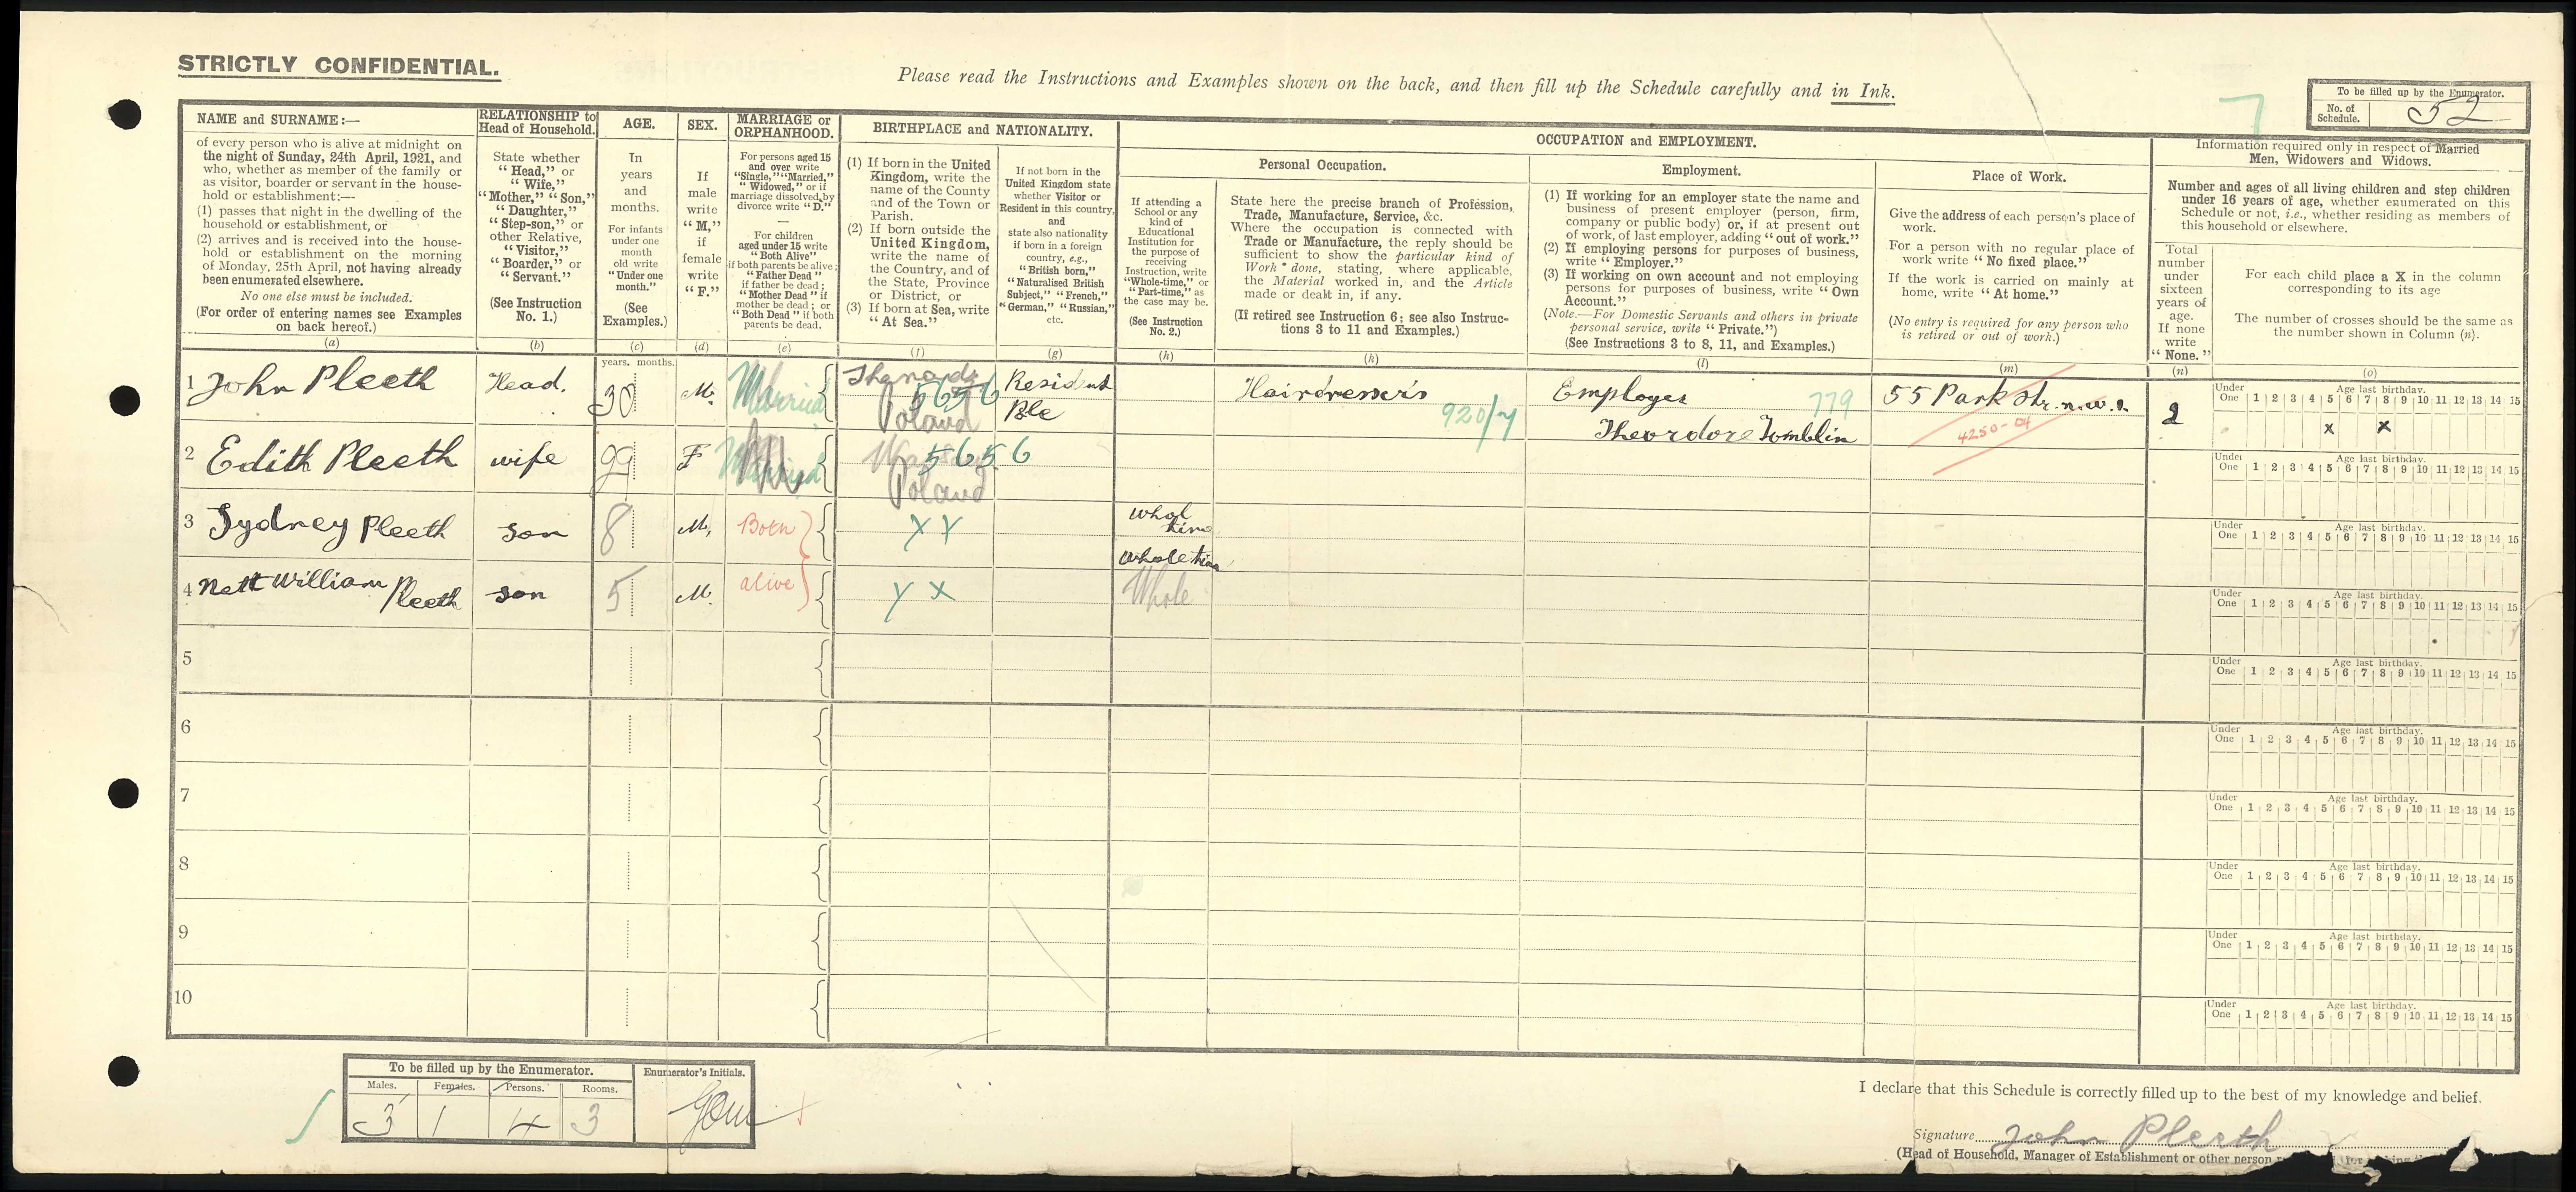 STRICTLY CONFIDENTIAL.
Please read the Instructions and Examples shown on the back, and then fill up the Schedule carefully and in Ink.
To be filled up by the Enumerator.
No. of Schedule. 52
7
NAME and SURNAME:—
of every person who is alive at midnight on
the night of Sunday, 24th April, 1921, and
who, whether as member of the family or
as visitor, boarder or servant in the house-
hold or establishment:—
(1) passes that night in the dwelling of the
household or establishment, or
(2) arrives and is received into the house-
hold or establishment on the morning
of Monday, 25th April, not having already
been enumerated elsewhere.
No one else must be included.
(For order of entering names see Examples
on back hereof.)
(a)
RELATIONSHIP to
Head of Household.
State whether
"Head," or
"Wife,"
"Mother," "Son,"
"Daughter,"
"Step-son," or
other Relative,
"Visitor,"
"Boarder," or
"Servant."
(See Instruction
No. 1.)
(b)
AGE.
In
years
and
months.
For infants
under one
month
old write
"Under one
month."
(See
Examples.)
(c)
SEX.
If
male
write
"M,"
if
female
write
"F."
(d)
MARRIAGE or
ORPHANHOOD.
For persons aged 15
and over write
"Single," "Married,"
"Widowed," or if
marriage dissolved by
divorce write "D."
—
For children
aged under 15 write
"Both Alive"
if both parents be alive;
"Father Dead"
if father be dead;
"Mother Dead" if
mother be dead; or
"Both Dead" if both
parents be dead.
(e)
BIRTHPLACE and NATIONALITY.
(1) If born in the United
Kingdom, write the
name of the County
and of the Town or
Parish.
(2) If born outside the
United Kingdom,
write the name of
the Country, and of
the State, Province
or District, or
(3) If born at Sea, write
"At Sea."
(f)
If not born in the
United Kingdom state
whether Visitor or
Resident in this country,
and
state also nationality
if born in a foreign
country, e.g.,
"British born,"
"Naturalised British
Subject," "French,"
"German," "Russian,"
etc.
(g)
OCCUPATION and EMPLOYMENT.
Personal Occupation.
If attending a
School or any
kind of
Educational
Institution for
the purpose of
receiving
Instruction, write
"Whole-time," or
"Part-time," as
the case may be.
(See Instruction
No. 2.)
(h)
State here the precise branch of Profession,
Trade, Manufacture, Service, &c.
Where the occupation is connected with
Trade or Manufacture, the reply should be
sufficient to show the particular kind of
Work done, stating, where applicable,
the Material worked in, and the Article
made or dealt in, if any.
(If retired see Instruction 6; see also Instruc-
tions 3 to 11 and Examples.)
(k)
Employment.
(1) If working for an employer state the name and
business of present employer (person, firm,
company or public body) or, if at present out
of work, of last employer, adding "out of work."
(2) If employing persons for purposes of business,
write "Employer."
(3) If working on own account and not employing
persons for purposes of business, write "Own
Account."
(Note.—For Domestic Servants and others in private
personal service, write "Private.")
(See Instructions 3 to 8, 11, and Examples.)
(l)
Place of Work.
Give the address of each person's place of
work.
For a person with no regular place of
work write "No fixed place."
If the work is carried on mainly at
home, write "At home."
(No entry is required for any person who
is retired or out of work.)
(m)
Information required only in respect of Married
Men, Widowers and Widows.
Number and ages of all living children and step children
under 16 years of age, whether enumerated on this
Schedule or not, i.e., whether residing as members of
this household or elsewhere.
Total
number
under
sixteen
years of
age.
If none
write
"None."
(n)
For each child place a X in the column
corresponding to its age
The number of crosses should be the same as
the number shown in Column (n).
(o)
years. months.
1 John Pleeth Head. 30 M. Married Poland 5656 Resident Pole Hairdresser's 920/7 Employer 779 Theordore Tomblin 55 Park Str. n.w.1. 4250-04 2
Under One 1 2 3 4 5 6 7 8 9 10 11 12 13 14 15 Age last birthday.
x x
2 Edith Pleeth wife 29 F Married 5656 Poland
Under One 1 2 3 4 5 6 7 8 9 10 11 12 13 14 15 Age last birthday.
3 Sydney Pleeth son 8 M. Both X Y Whol time
Under One 1 2 3 4 5 6 7 8 9 10 11 12 13 14 15 Age last birthday.
4 Nett William Pleeth son 5 M. alive Y X Whole time Whole
Under One 1 2 3 4 5 6 7 8 9 10 11 12 13 14 15 Age last birthday.
5
Under One 1 2 3 4 5 6 7 8 9 10 11 12 13 14 15 Age last birthday.
6
Under One 1 2 3 4 5 6 7 8 9 10 11 12 13 14 15 Age last birthday.
7
Under One 1 2 3 4 5 6 7 8 9 10 11 12 13 14 15 Age last birthday.
8
Under One 1 2 3 4 5 6 7 8 9 10 11 12 13 14 15 Age last birthday.
9
Under One 1 2 3 4 5 6 7 8 9 10 11 12 13 14 15 Age last birthday.
10
Under One 1 2 3 4 5 6 7 8 9 10 11 12 13 14 15 Age last birthday.
To be filled up by the Enumerator.
Males. Females. Persons. Rooms.
3 1 4 3
Enumerator's Initials.
I declare that this Schedule is correctly filled up to the best of my knowledge and belief.
Signature John Pleeth
(Head of Household, Manager of Establishment or other person